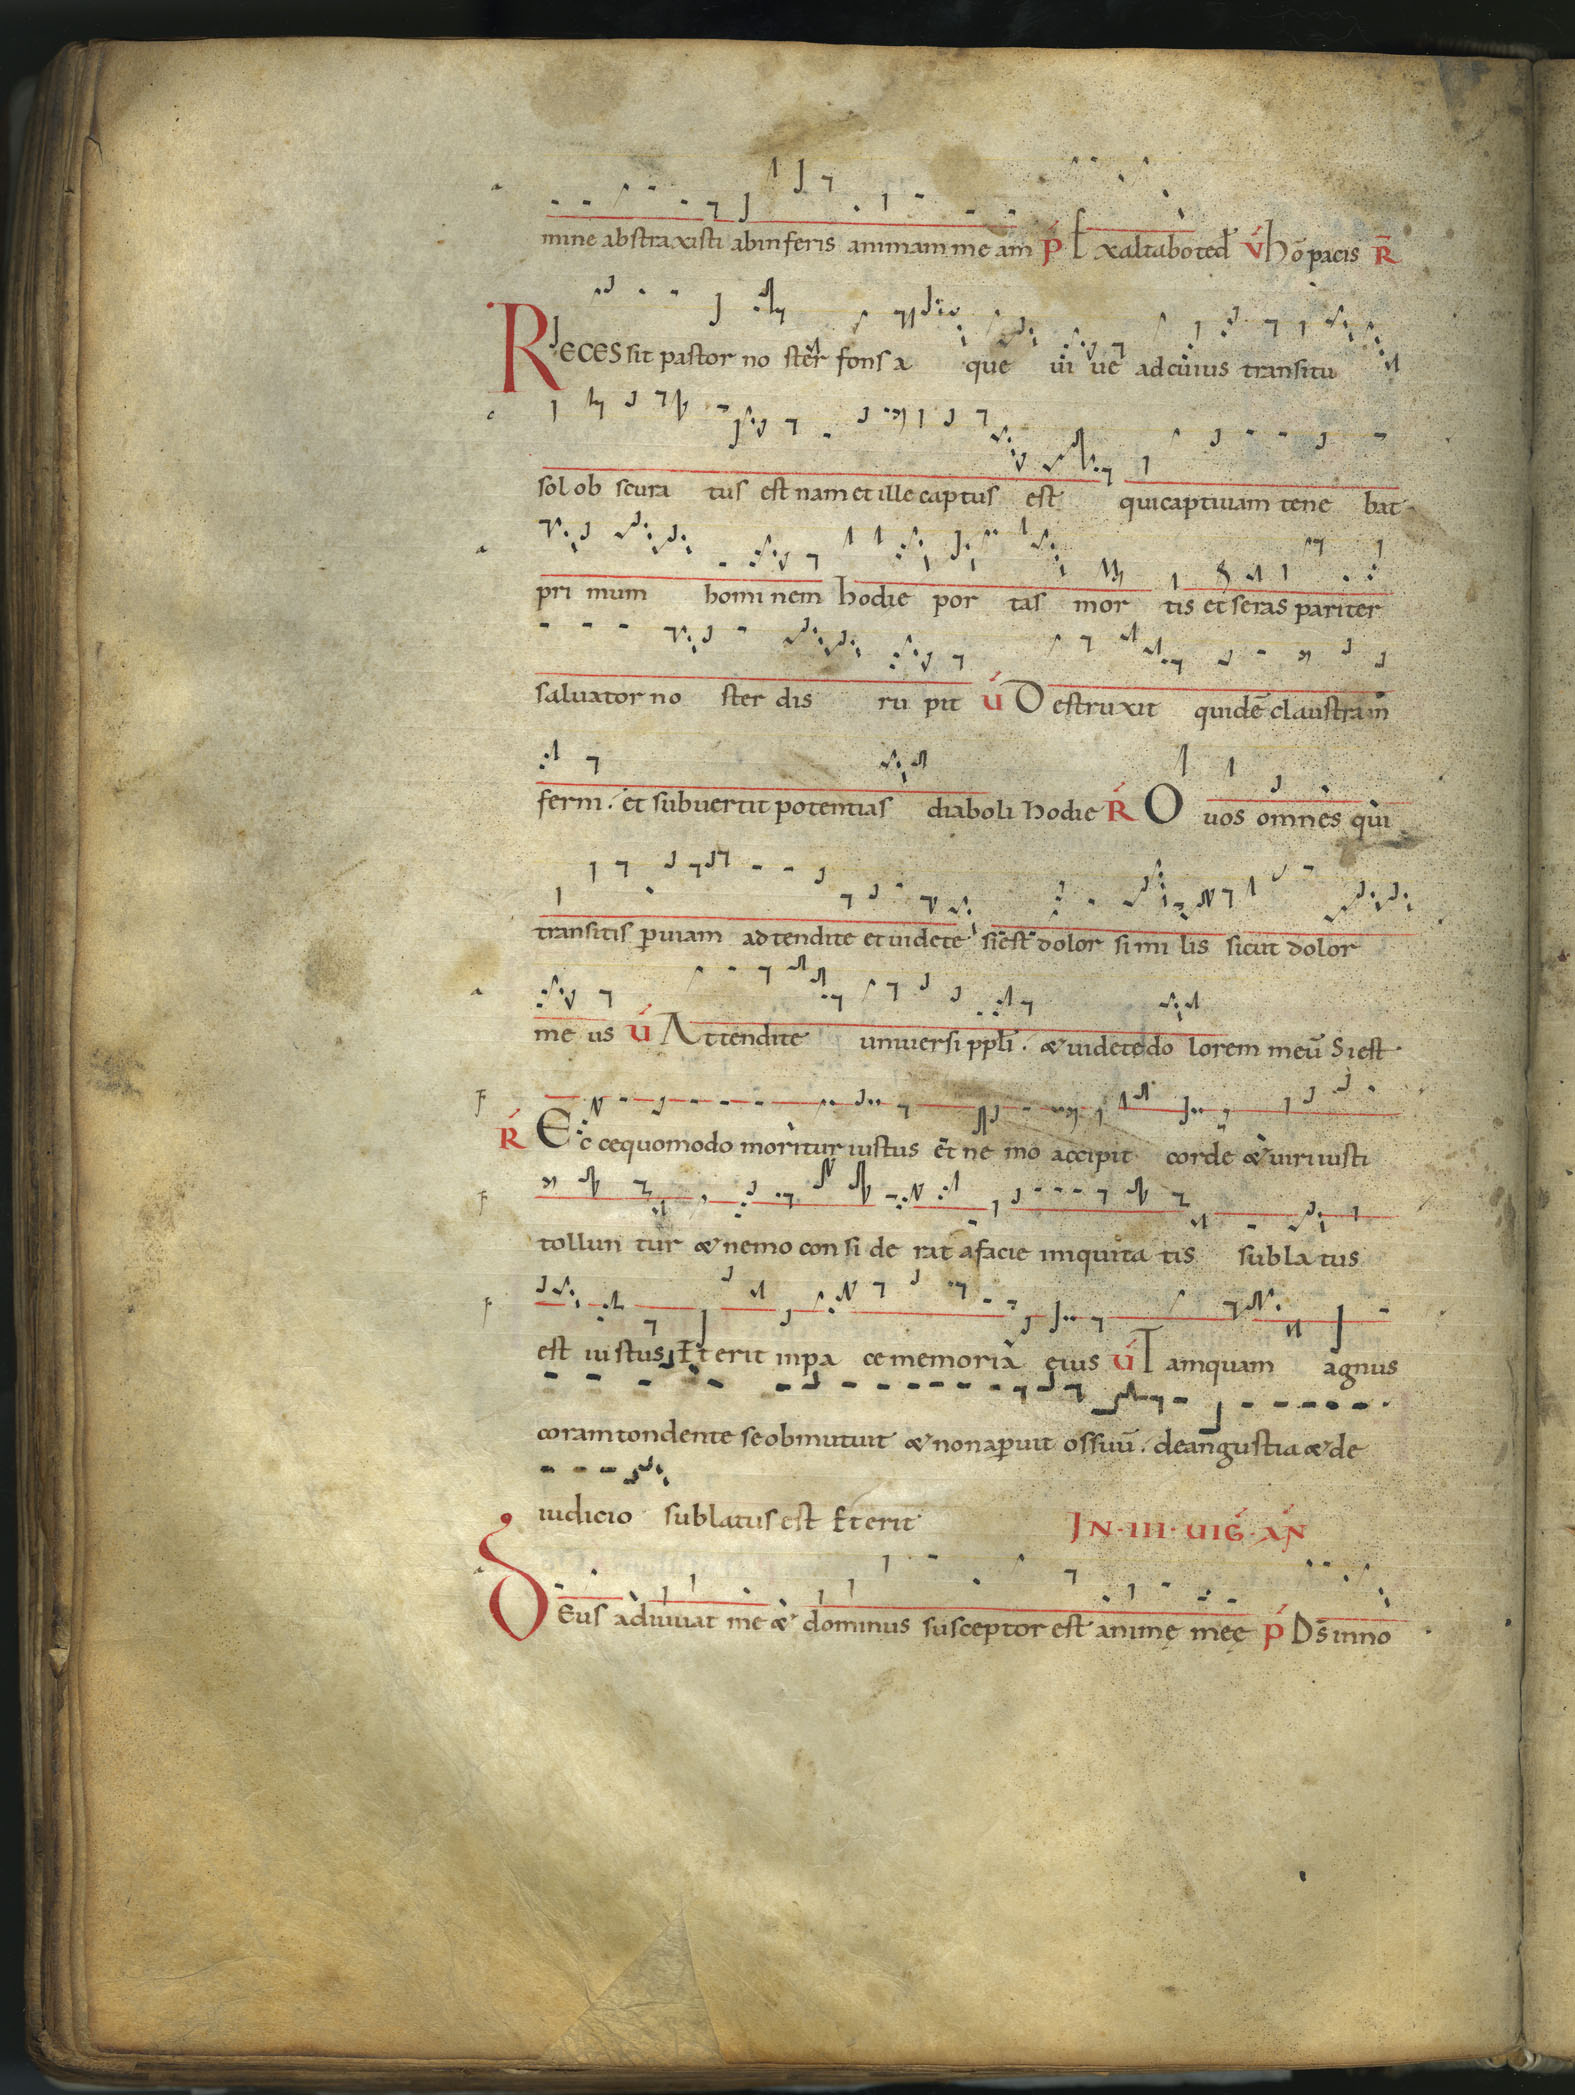 mine abstraxisti ab inferis animam me am P̄ Exaltabo te dn̄e V̄ Hō pacis R̄
RECESsit pastor no ster fons a que ui ue ad cuius transitu
sol ob scura tus est nam et ille captus est qui captiuam tene bat
pri mum homi nem hodie por tas mor tis et seras pariter
saluator no ster dis ru pit V̄ Destruxit quidē claustra in
ferni. et subuertit potentias diaboli Hodie R̄ O uos omnes qui
transitis ꝑ uiam adtendite et uidete si est dolor si mi lis sicut dolor
me us V̄ Attendite uniuersi ppl̄i. & uidete do lorem meū Si est
R̄ Ec ce quomodo moritur iustus et ne mo accipit corde & uiri iusti
tollun tur & nemo con si de rat a facie iniquita tis subla tus
est iu stus Et erit in pa ce memoria eius V̄ Tamquam agnus
coram tondente se obmutuit & non aꝑuit os suū. de angustia & de
iudicio sublatus est Et erit IN·III·UIḠ·AN̄
DEus adiuuat me & dominus susceptor est animę meę P̄ Ds̄ in no